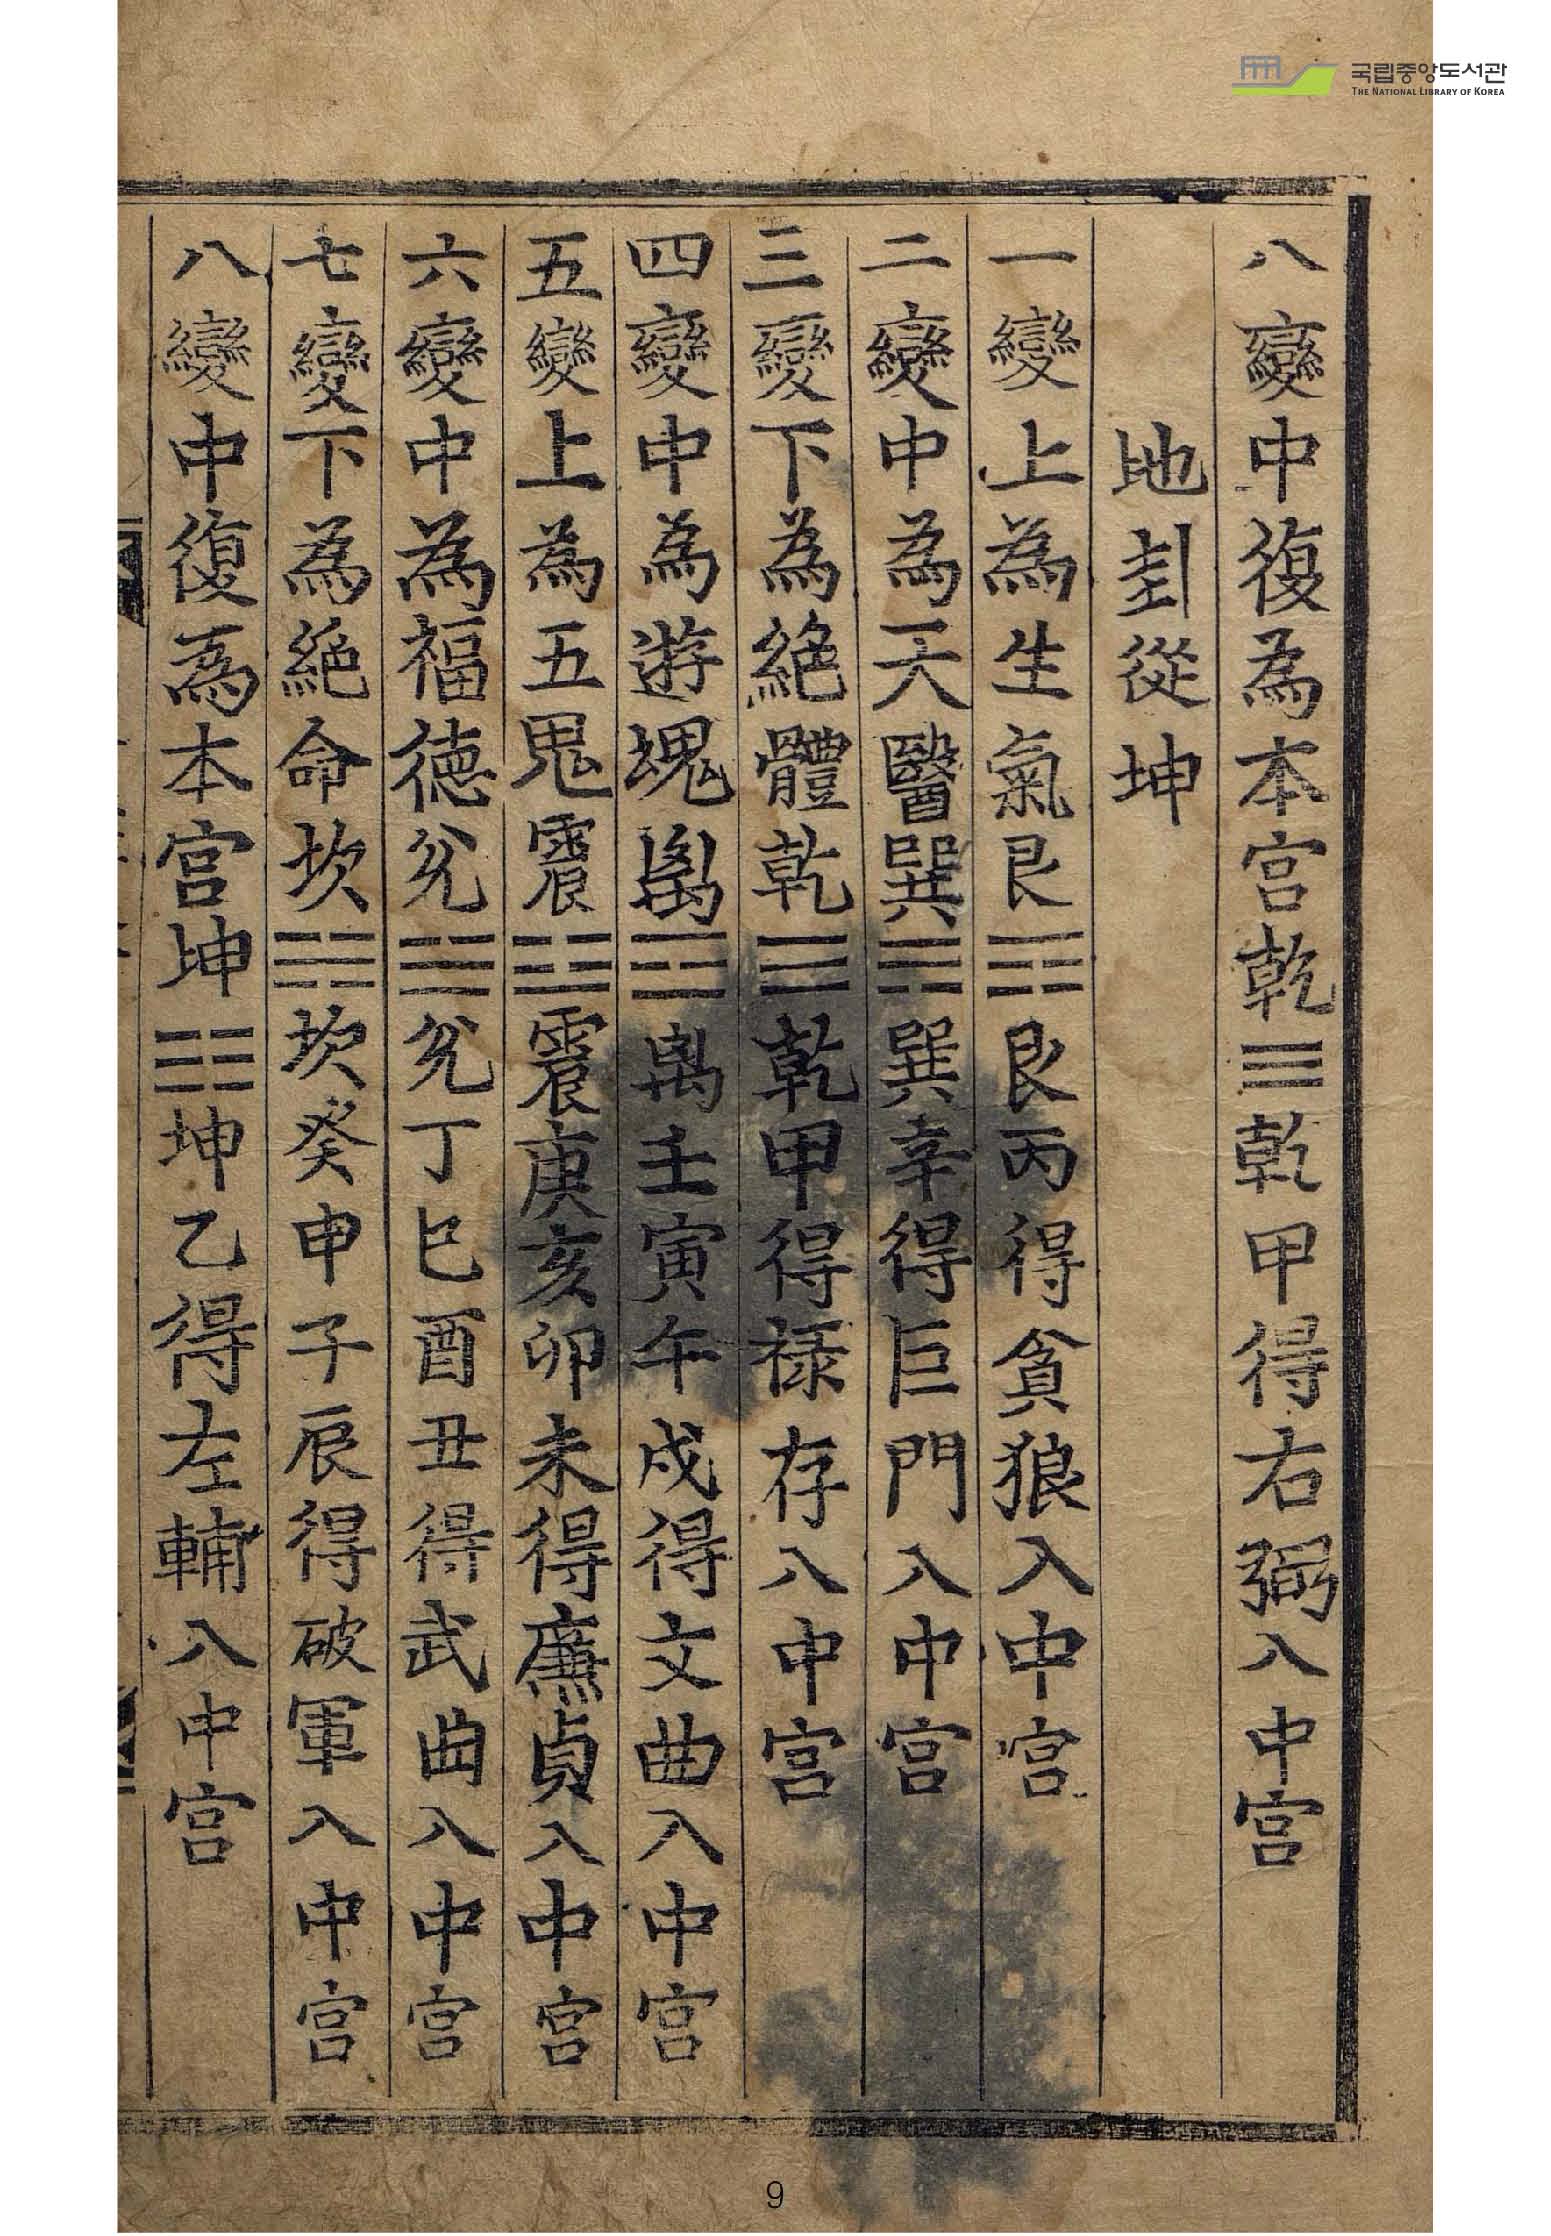 국립중앙도서관
THE NATIONAL LIBRARY OF KOREA
八變中復為本宮乾☰乾甲得右弼入中宮
地卦從坤
一變上為生氣艮☶艮丙得貪狼入中宮
二變中為天醫巽☴巽辛得巨門入中宮
三變下為絶體乾☰乾甲得祿存入中宮
四變中為遊魂离☲离壬寅午戌得文曲入中宮
五變上為五鬼震☳震庚亥卯未得廉貞入中宮
六變中為福德兊☱兊丁巳酉丑得武曲入中宮
七變下為絶命坎☵坎癸申子辰得破軍入中宮
八變中復為本宮坤☷坤乙得左輔入中宮
9